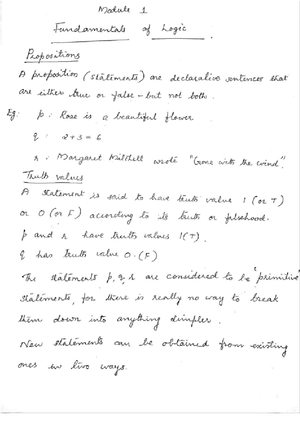 Module 1
Fundamentals of Logic.
Propositions
A proposition (statements) are declarative sentences that
are either true or false - but not both.
Eg: p : Rose is a beautiful flower
q : 2+3=
r : Margaret Mitchell wrote "Gone with the wind".
Truth values
A statement is said to have truth value 1 (or T)
or 0 (or F) according to its truth or falsehood.
p and r have truth values 1(T).
q has truth value 0.(F)
The statements p, q, r are considered to be "primitive"
statements, for there is really no way to break
them down into anything simpler.
New statements can be obtained from existing
ones in two ways.